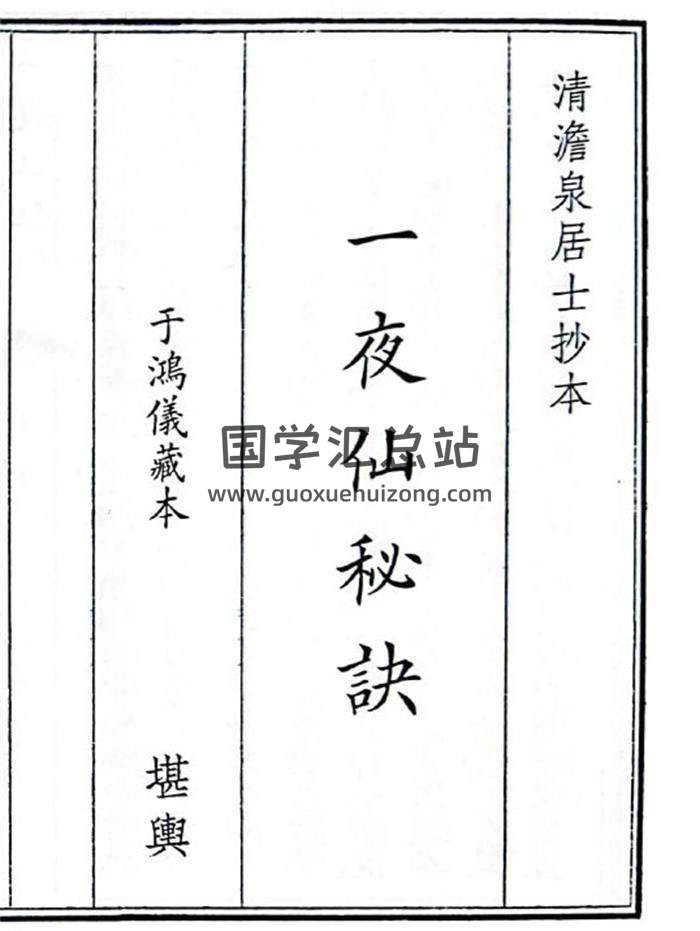 清澹泉居士抄本
一夜仙秘訣
于鴻儀藏本
堪輿
国学汇总站
www.guoxuehuizong.com